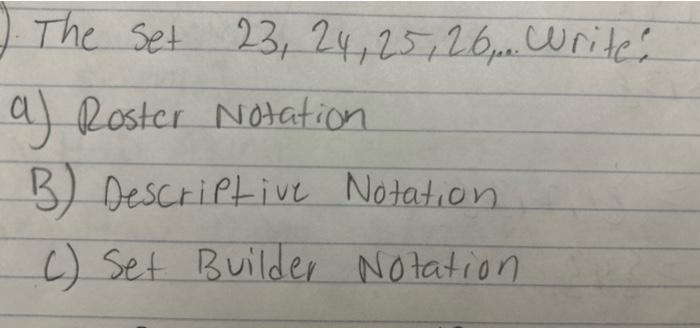 ). The Set 23, 24, 25, 26,... Write:
a) Roster Notation
B) Descriptive Notation
C) Set Builder Notation